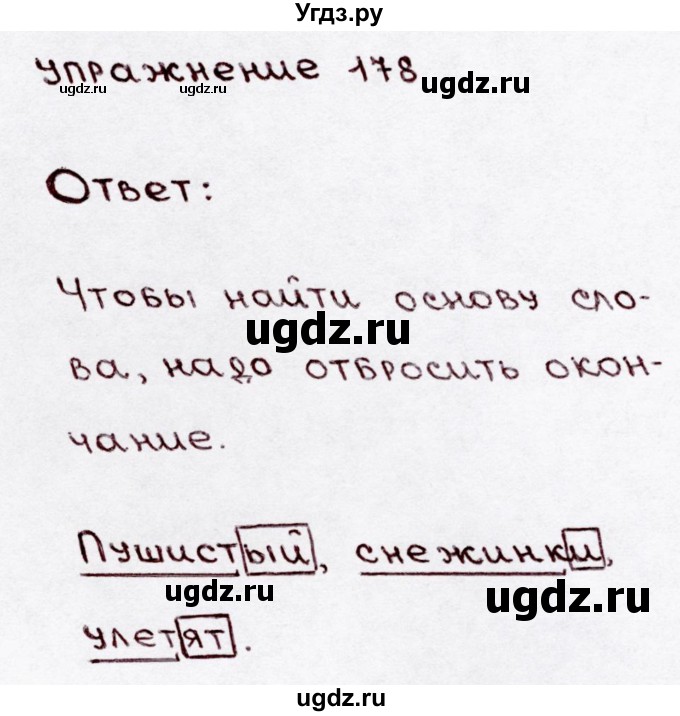 Угдз.ру
упражнение 178
ugdz.ru ugdz.ru ugdz.ru
Ответ:
Чтобы найти основу сло-
ugdz.ru
ва, надо отбросить окон-
чание.
ugdz.ru
Пушистый, снежинки,
ugdz.ru ugdz.ru
улетят.
ugdz.ru